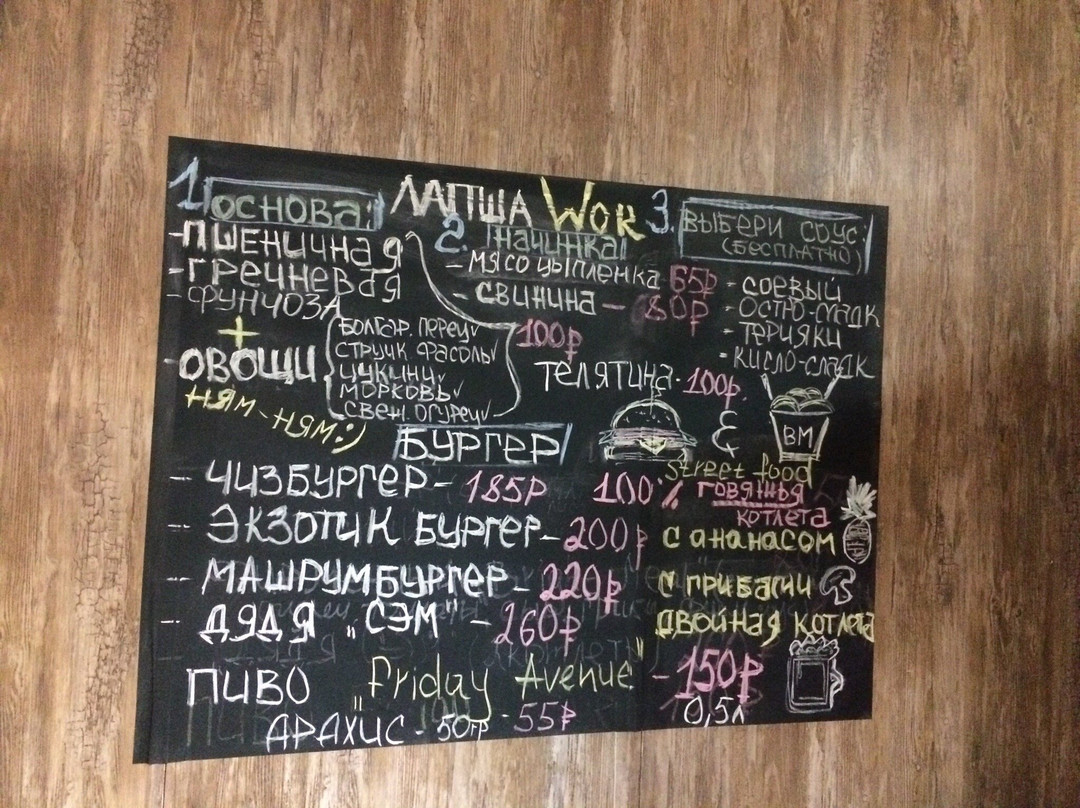 ЛАПША WOK
1. ОСНОВА:
-ПШЕНИЧНАЯ
-ГРЕЧНЕВАЯ
-ФУНЧОЗА
+
-ОВОЩИ
БОЛГАР. ПЕРЕЦ
СТРУЧК. ФАСОЛЬ
ЦУКИНИ
МОРКОВЬ
СВЕЖ. ОГУРЕЦ
100₽
НЯМ-НЯМ:)
2. НАЧИНКА
- МЯСО ЦЫПЛЕНКА 65₽
- СВИНИНА - 80₽
ТЕЛЯТИНА - 100₽.
3. ВЫБЕРИ СОУС
(БЕСПЛАТНО)
- СОЕВЫЙ
- ОСТРО-СЛАДК
- ТЕРИЯКИ
- КИСЛО-СЛАДК
&
ВМ
Street food
БУРГЕР
- ЧИЗБУРГЕР - 185₽ 100% ГОВЯЖЬЯ
КОТЛЕТА
-- ЭКЗОТИК БУРГЕР - 200₽ С АНАНАСОМ
-- МАШРУМБУРГЕР - 220₽ С ГРИБАМИ
-- ДЯДЯ „СЭМ" - 260₽ ДВОЙНАЯ КОТЛЕТА
ПИВО „Friday Avenue" - 150₽
0,5л
АРАХИС - 50гр - 55₽